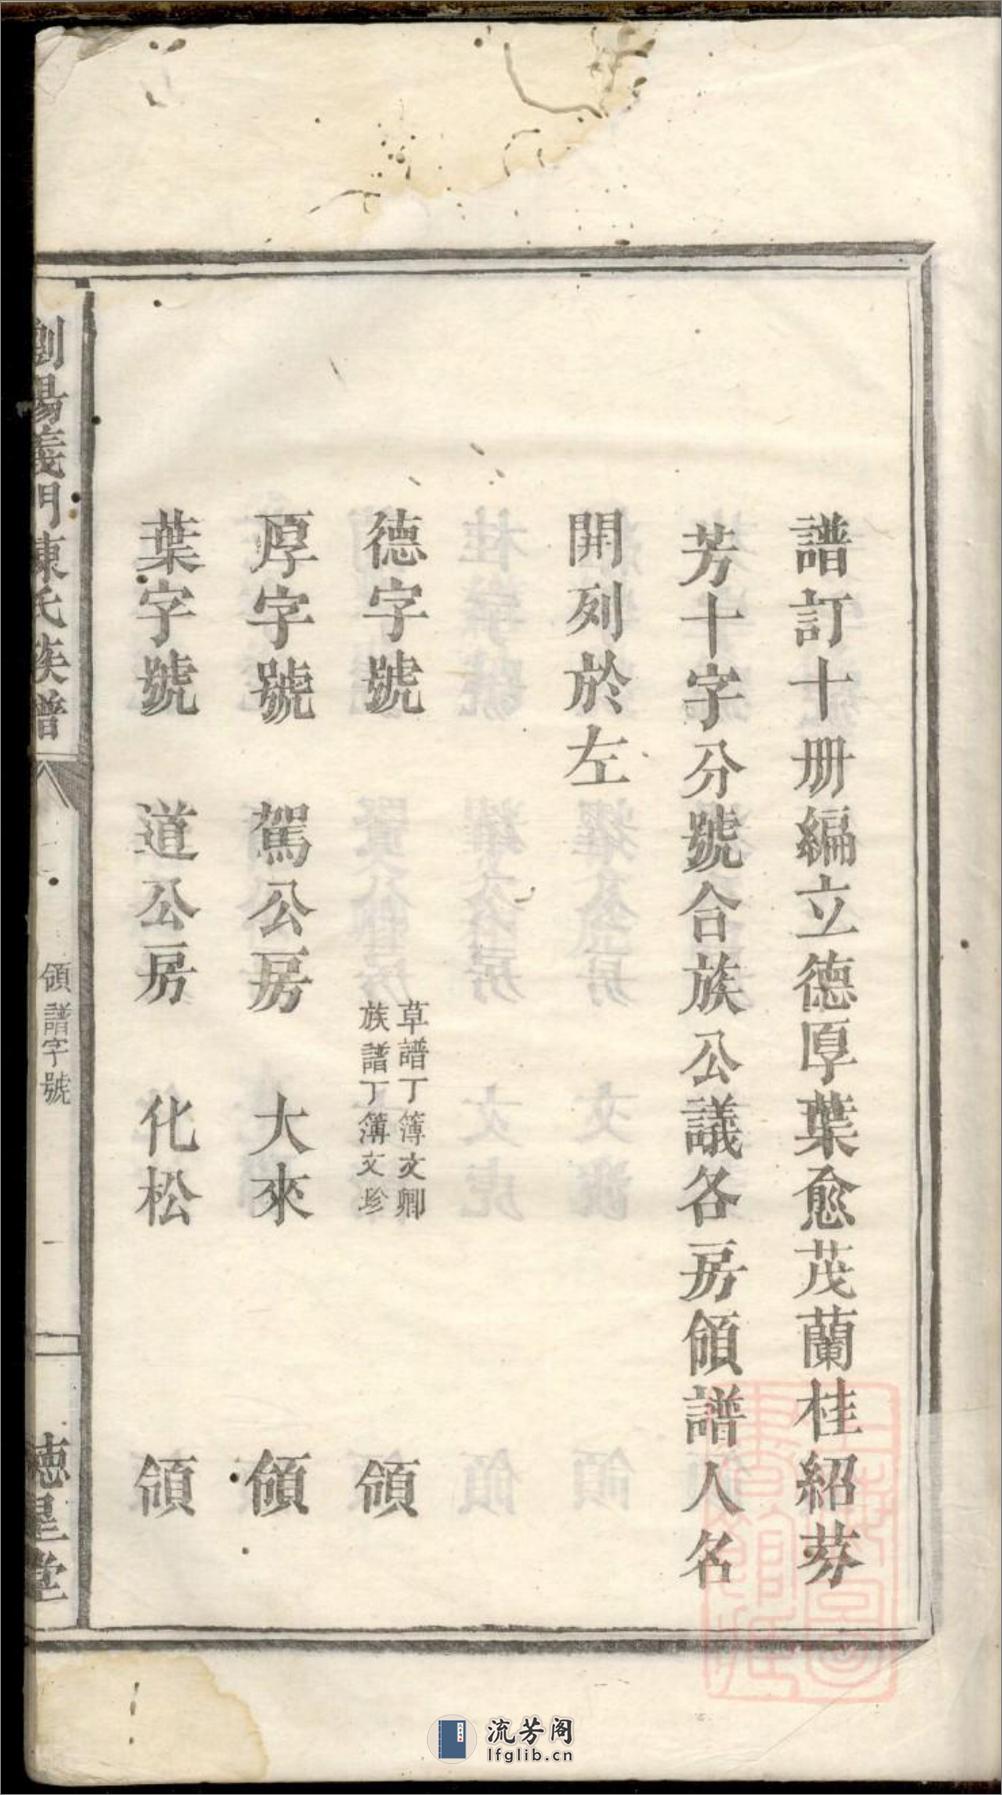 譜訂十冊編立德厚葉愈茂蘭桂紹芬
芳十字分號合族公議各房領譜人名
開列於左
德字號 草譜丁簿文卿 族譜丁簿文珍 領
厚字號 駕公房 大來 領
葉字號 道公房 化松 領
瀏陽義門陳氏族譜 領譜字號 一 德星堂
流芳阁
lfglib.cn